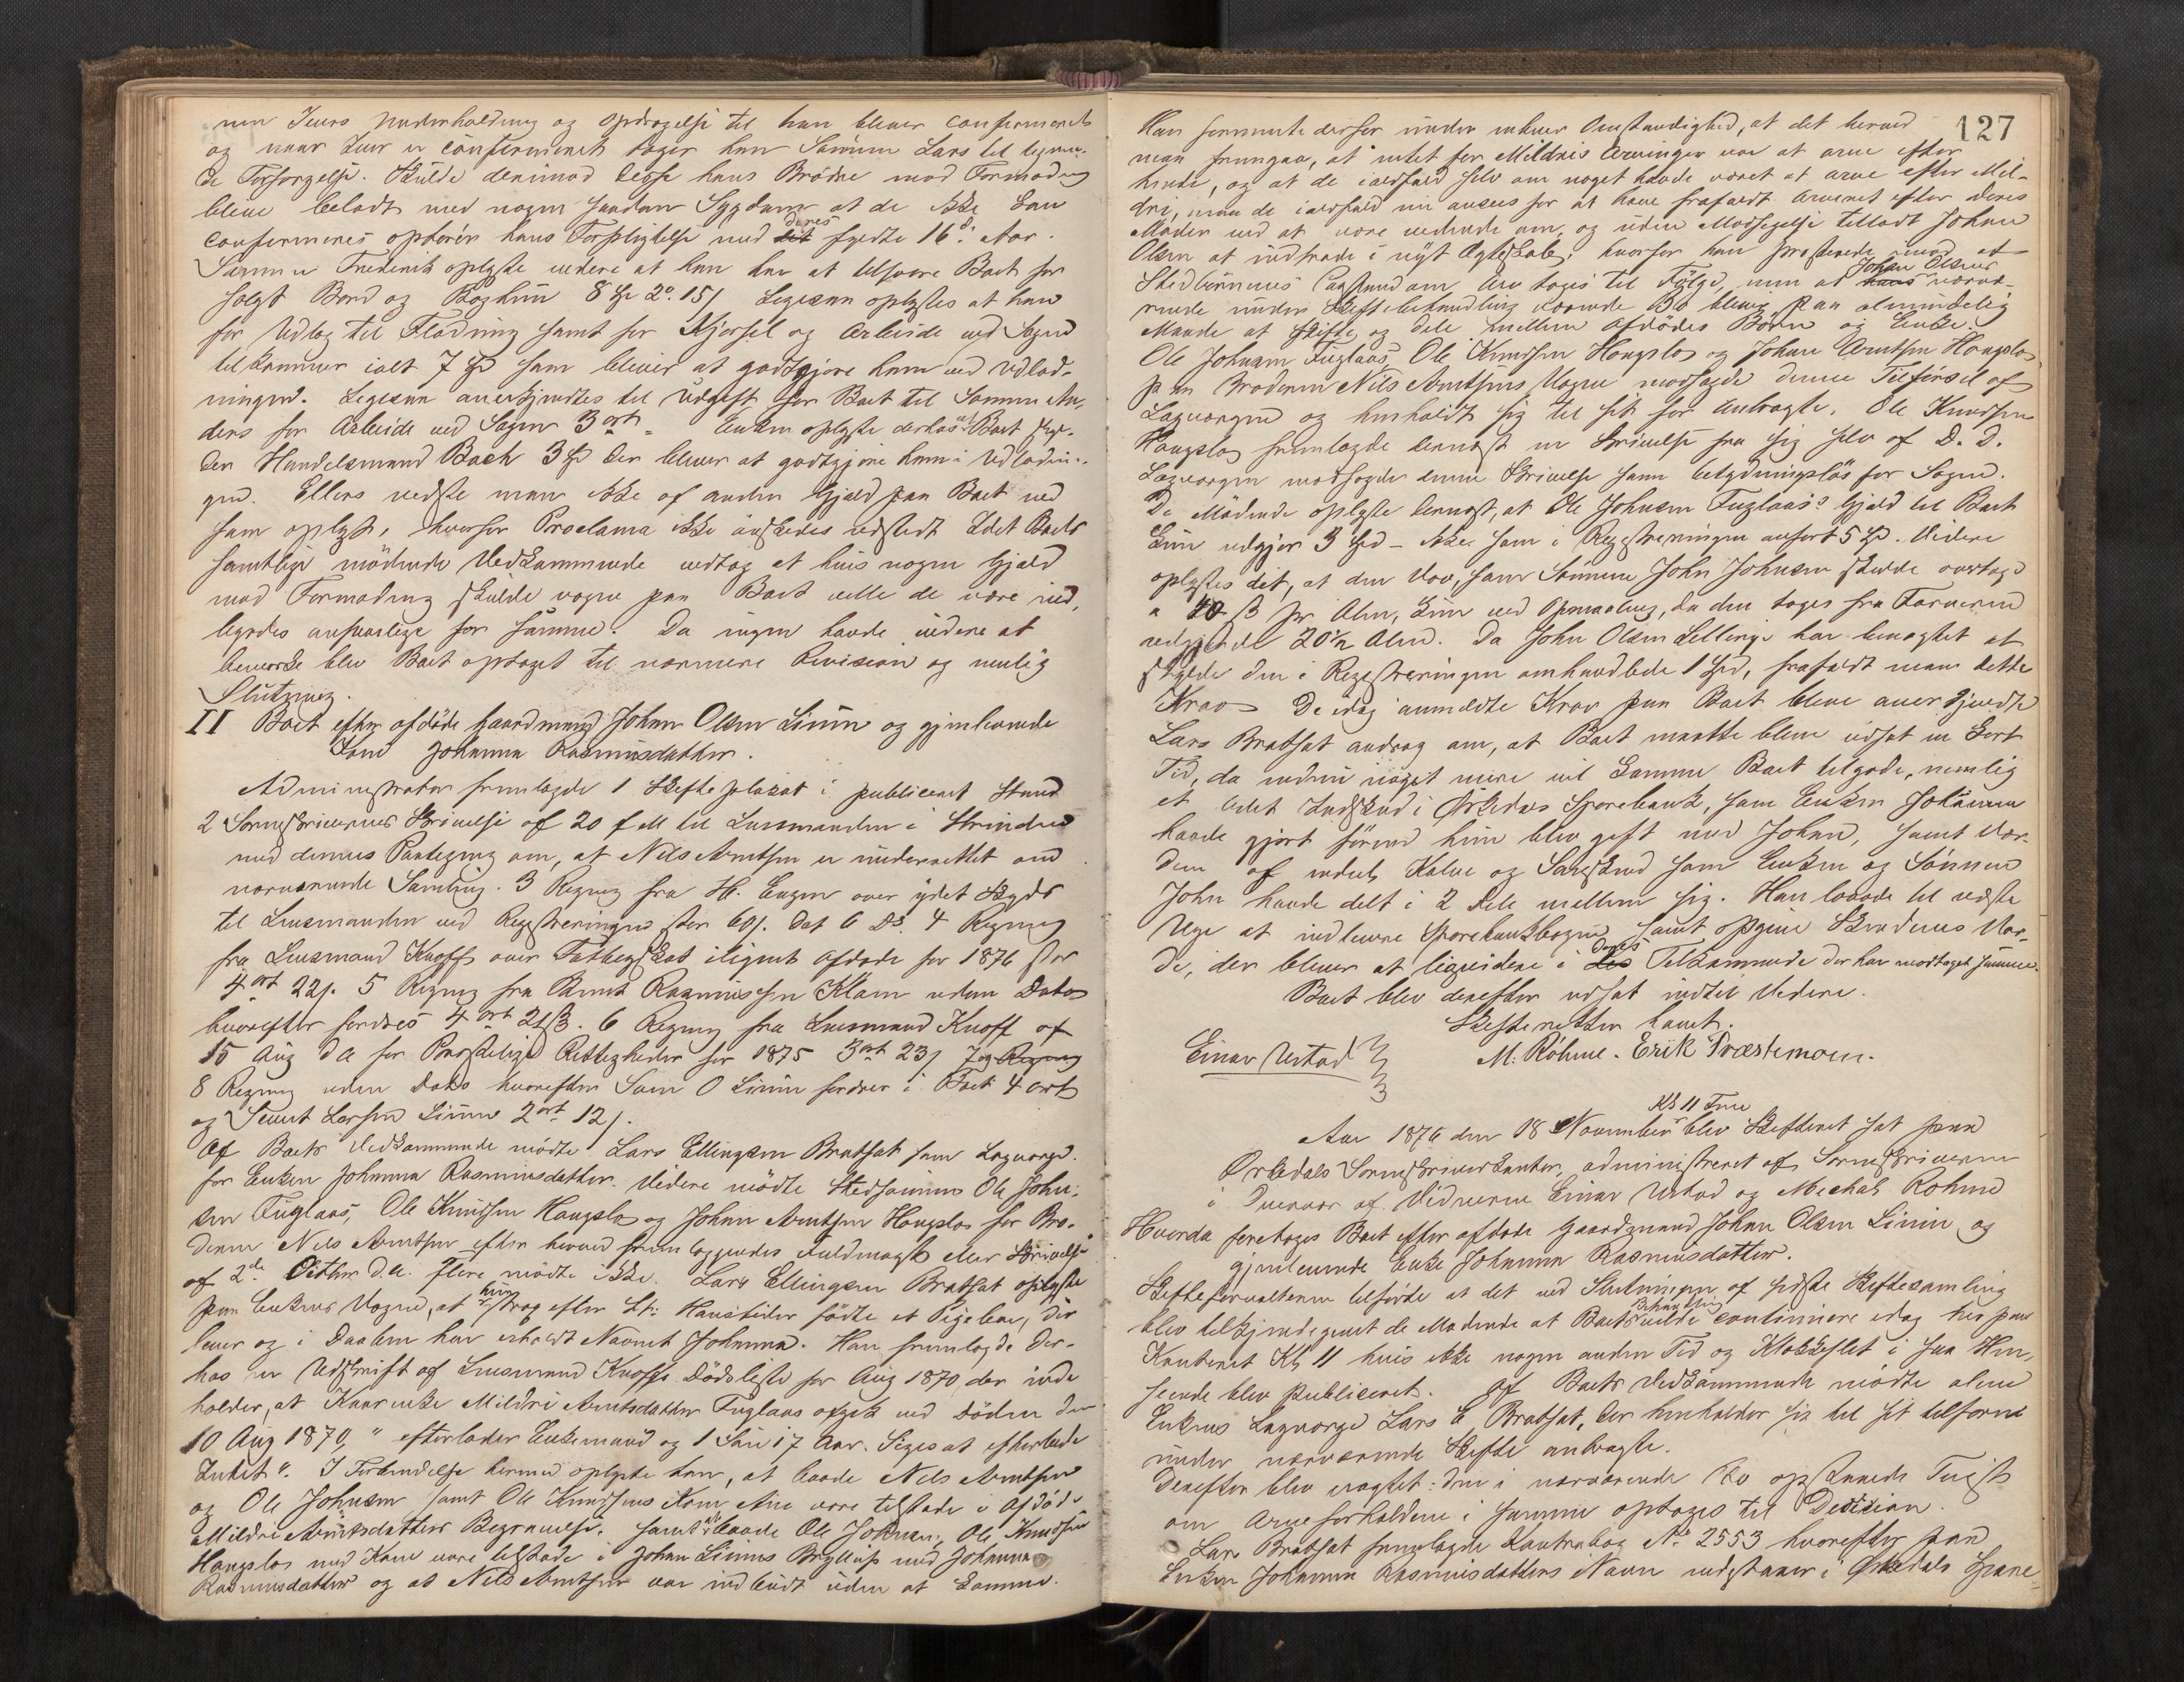 nem Jeurs Underholdning og Opdragelse til han bliver confirmeret
og naar Jeur er confirmeret tager han Sønnen Lars til lignen-
de Forsørgelse. Skulde derimod begge hans Brødre mod Formodning
blive beladt med nogen saadan Sygdom at de ikke kan
confirmeres ophører hans Forpligtelse med deres fyldte 16de Aar.
Sønnen Frederik oplyste videre at han har at tilsvare Boet for
solgt Bord og Boghun 8 Spd 2o. 15/ Ligesaa oplystes at han
for Udlæg til Flødning samt for Kjørsel og Arbeide ved Sagen
tilkommer ialt 7 Spd som bliver at godtgjøre ham ved Udlod-
ningen. Ligesaa anerkjendtes til Udgift for Boet til Sønnen An-
ders for Arbeide ved Sagen 3 ort. Enken oplyste derhos at Boet skyl-
der Handelsmand Bach 3 Spd der bliver at godtgjøre ham i Udlodnin-
gen. Ellers vidste man ikke af anden Gjæld paa Boet end
som oplyst, hvorfor Proclama ikke ønskedes udstedt idet Boets
samtlige mødende Vedkommende vedtog at hvis nogen Gjæld
mod Formodning skulde vogne paa Boet ville de være ind-
byrdes ansvarlige for samme. Da ingen havde videre at
bemærke blev Boet optaget til nærmere Revision og mulig
Slutning.
II Boet efter afdøde Gaardmand Johan Olsen Liium og gjenlevende
Kone Johanna Rasmusdatter.
Administrator fremlagde 1 Skifteplakat i publiceret Stand
2 Sorenskriverens Skrivelse af 20 f M til Lensmanden i Strinden
med dennes Paategning om, at Nils Arntsen er underrettet om
nærværende Samling. 3 Regning fra H. Eugen over ydet Skyds
til Lensmanden ved Registreringen stor 60/. Dat 6 ds. 4 Regning
fra Lensmand Knoff over Fattigskat ilignet Afdøde for 1876 stor
4 ort 22/. 5 Regning fra Arnt Rasmussen Klam uden Dato
hvorefter fordres 4 ort 21 ß. 6 Regning fra Lensmand Knoff af
15 Aug d A for Præstelige Rettigheder for 1875 3 ort 23/ 7 og Regning
8 Regning uden Dato hvorefter Iver O Liium fordrer i Boet 4 ort
og Sivert Larsen Liium 2 ort 12/.
Af Boets Vedkommende mødte Lars Ellingsen Bratset som Lagværge
for Enken Johanna Rasmusdatter. Videre mødte Stedsønnen Ole John-
sen Fuglaas, Ole Knudsen Haugslo og Johan Arntsen Haugslo for Bro-
deren Nils Arntsen efter herved fremlæggendes Fuldmagt eller Skrivelse
af 2de Octbr. d.A. Flere mødte ikke. Lars Ellingsen Bratset oplyste
paa Enkens Vegne, at hun strax efter St: Hanstider fødte et Pigebarn, der
lever og i Daaben har erholdt Navnet Johanna. Han fremlagde der-
hos en Udskrift af Lensmand Knoffs Dødsliste for Aug 1870 der inde
holder, at Kaarenke Mildri Arntsdatter Fuglaas afgik ved Døden den
10 Aug 1870, " efterlader Enkemand og 1 Søn 17 Aar. Siges at efterlade
Intet". I Forbindelse hermed oplyste han, at baade Nils Arntsen
og Ole Johnsen samt Ole Knudsens Kone Ane vare tilstede i Afdøde
Mildri Arntsdatters Begravelse. samt at baade Ole Johnsen, Ole Knudsen
Haugslo med Kone vare tilstede i Johan Liiums Bryllup med Johanna
Rasmusdatter og at Nils Arntsen var indbudt uden at komme.
127
Han formente derfor under enhver Omstændighed, at det herved
maa fremgaa, at intet for Mildris Arvinger var at arve efter
hende, og at de ialdfald selv om noget havde været at arve efter Mil-
dri, maa de ialdfald nu ansees for at have frafaldt Arveret efter deres
Moder ved at være vidende om, og uden Modsigelse tilladt Johan
Olsen at indtræde i nyt Ægteskab, hvorfor han protesterede mod at
Stedbørnenes Paastand om Arv toges til Følge, men at Johan Olsens nærvæ-
rende under Skiftebehandling værende Bo blev paa almindelig
Maade at skifte og dele mellem Afdødes Børn og Enke.
Ole Johnsen Fuglaas, Ole Knudsen Haugslo og Johan Arntsen Haugslo
paa Broderen Nils Arntsens Vegne modsagde denne Tilførsel af
Lagværgen og henholdt sig til sit før Anbragte. Ole Knudsen
Haugslo fremlagde dernæst en Skrivelse fra sig selv af D. D.
Lagværgen modsagde denne Skrivelse som betydningsløs for Sagen.
De Mødende oplyste dernæst, at Ole Johnsen Fuglaas's Gjæld til Boet
kun udgjør 3 Spd - ikke som i Registreringen anført 5 Spd. Videre
oplystes det, at den Vov, som Sønnen John Johnsen skulde overtage
a 40 ß pr Alen, kun ved Opmaaling, da den toges fra Farveren
udgjorde 20½ Alen. Da John Olsen Sellingi har benegtet at
skylde den i Registreringen omhandlede 1 Spd, frafaldt man dette
Krav. De idag anmeldte Krav paa Boet bleve anerkjendte
Lars Bratset androg om, at Boet maatte blive udsat en kort
Tid, da endnu noget mere vil komme Boet tilgode, nemlig
et lidet Indskud i Ørkedals Sparebank, som Enken Johanna
havde gjort førend hun blev gift med Johan, samt Vær-
dien af endel Kalve og Saueskind som Enken og Sønnen
John havde delt i 2 Dele mellem sig. Han lovede til næste
Uge at indlevere Sparebankbogen samt opgive Skindenes Vær-
di, der bliver at liquidere i deres Tilkommende der har modtaget samme.
Boet blev derefter udsat indtil Videre.
Skifteretten hævet.
Einar Ustad M: Röhme. Erik Præstemoen.
Kl 11 Form
Aar 1876 den 18 November blev Skifteret sat paa
Ørkedals Sorenskriverkontor, administreret af Sorenskriveren
i Overvær af Vidnerne Einar Ustad og Michal Rohme
Hvorda foretoges Boet efter afdøde Gaardmand Johan Olsen Liium og
gjenlevende Enke Johanna Rasmusdatter.
Skifteforvalteren tilførte at det ved Slutningen af sidste Skiftesamling
blev tilkjendegivet de Mødende at Boets Behandling vilde continuere idag her paa
Kontoret Kl 11 hvis ikke nogen anden Tid og Klokkeslet i saa Hen-
seende blev publiceret. Af Boets Vedkommende mødte alene
Enkens Lagværge Lars E Bratset, der henholder sig til sit tilforn
under nærværende Skifte anbragte.
Derefter blev eragtet: den i nærværende Bo opstaaede Tvist
om Arveforholdene i samme optages til Decision.
Lars Bratset fremlagde Kontrabog No 2553 hvorefter paa
Enken Johanna Rasmusdatters Navn indestaaer i Ørkedals Spare-